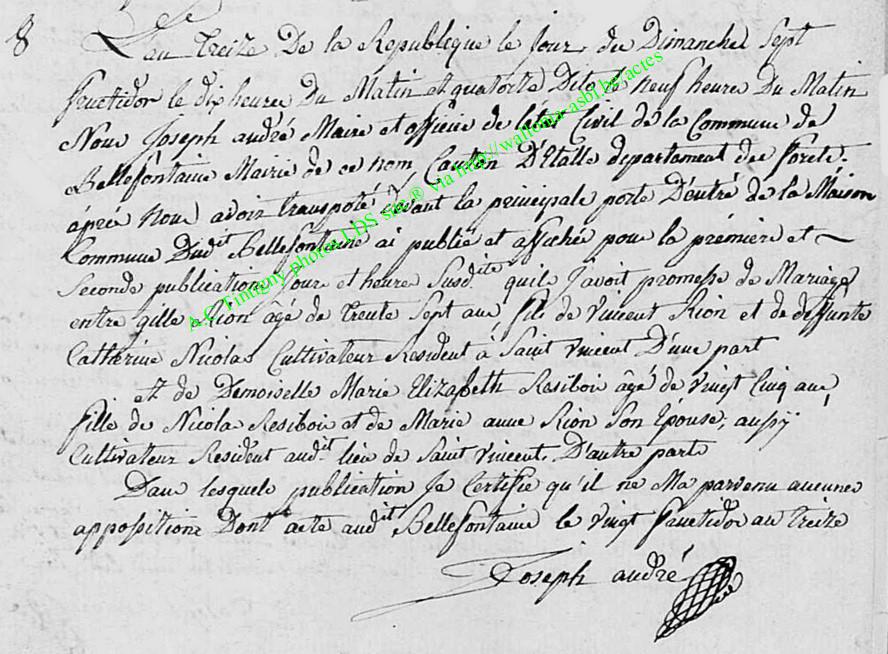 8
L'an treize De la Republique le Jour du Dimanche Sept
fructidor le dix heures Du Matin et quatorze Dito le neuf heures Du Matin
Nous Joseph andré Maire et officier de l'état Civil de la Commune de
Bellefontaine Mairie de ce nom, Canton D'Etalle departement des forets.
áprés nous avoir transpoté devant la principale porte D'entré de la Maison
Commune Dudit Bellefontaine ai publié et affiché pour la prémiere et
Seconde publication Jours et heures Susdite quils J'avoit promesse de Mariage
entre gille Rion âgé de trente Sept ans fils de Vincent Rion et de deffunte
Catherine Nicolas Cultivateur Resident á Saint Vincent D'une part
et de Demoiselle Marie Elizabeth Resibois âgé de vingt Cinq ans,
fille de Nicolas Resibois et de Marie anne Rion Son Epouse, aussÿ
Cultivateur Resident audit lieu de Saint Vincent. D'autre parts
Dans lesquels publication Je Certifie qu'il ne Ma parvenu aucunes
appositions Dont acte audit Bellefontaine le vingt fructidor an treize
Joseph andré
A.C. Tintigny photos LDS site ® via http://wallonia-asbl.be/actes